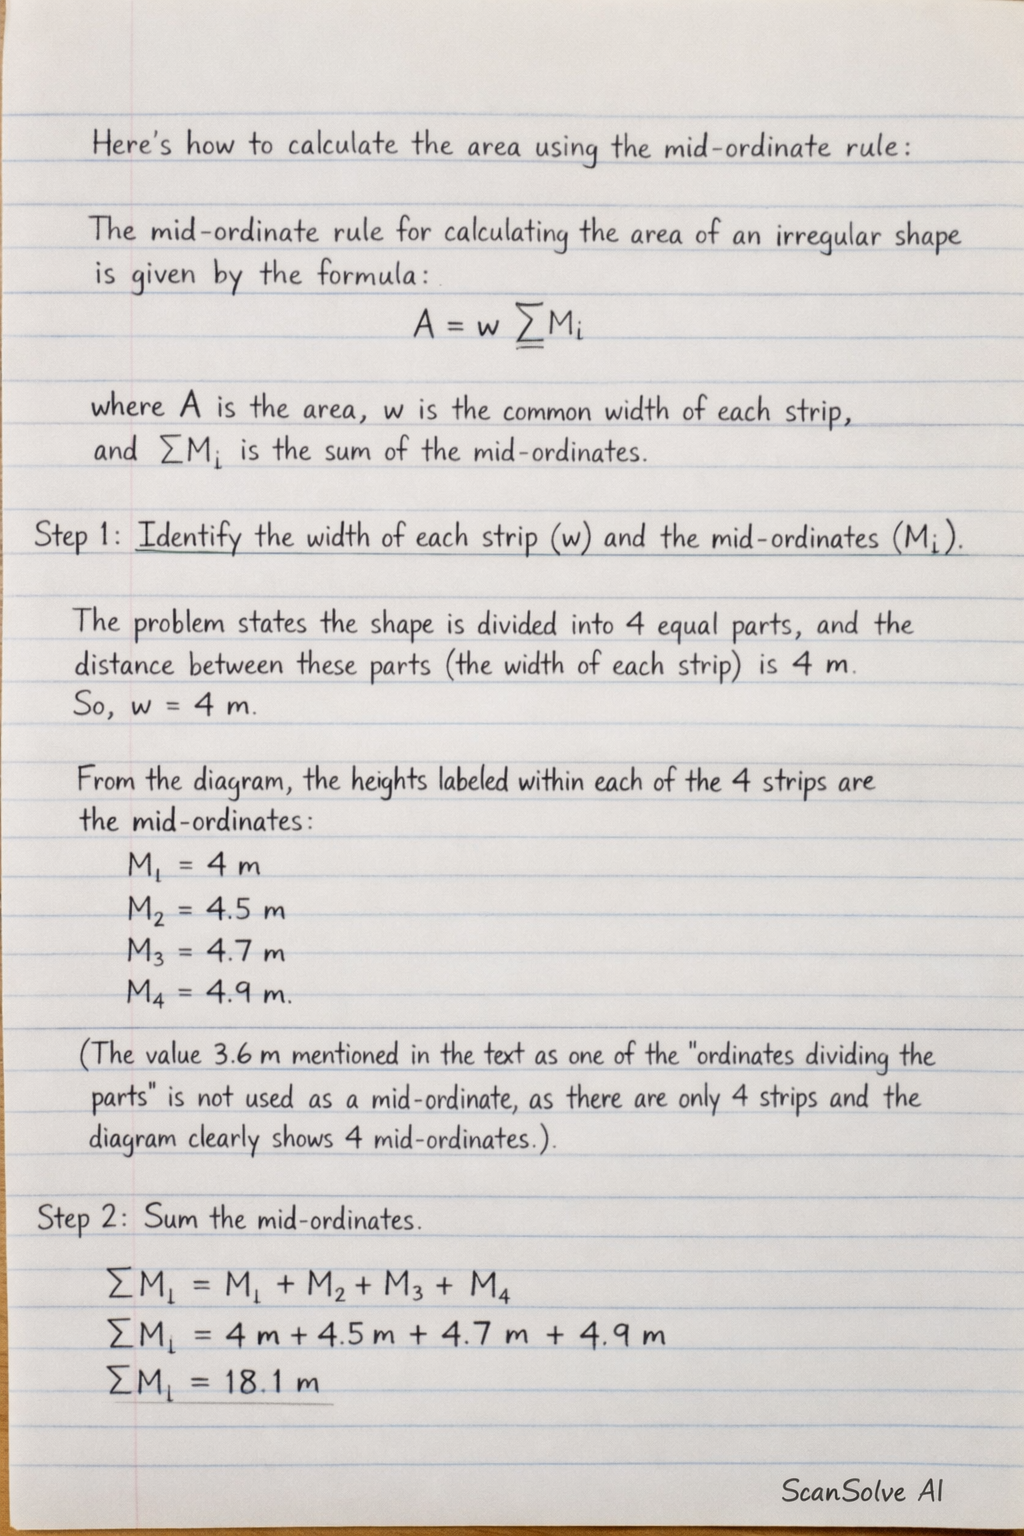 Here's how to calculate the area using the mid-ordinate rule:
The mid-ordinate rule for calculating the area of an irregular shape
is given by the formula:
A = w ∑Mᵢ
where A is the area, w is the common width of each strip,
and ∑Mᵢ is the sum of the mid-ordinates.
Step 1: Identify the width of each strip (w) and the mid-ordinates (Mᵢ).
The problem states the shape is divided into 4 equal parts, and the
distance between these parts (the width of each strip) is 4 m.
So, w = 4 m.
From the diagram, the heights labeled within each of the 4 strips are
the mid-ordinates:
M₁ = 4 m
M₂ = 4.5 m
M₃ = 4.7 m
M₄ = 4.9 m.
(The value 3.6 m mentioned in the text as one of the "ordinates dividing the
parts" is not used as a mid-ordinate, as there are only 4 strips and the
diagram clearly shows 4 mid-ordinates.).
Step 2: Sum the mid-ordinates.
∑M₁ = M₁ + M₂ + M₃ + M₄
∑M₁ = 4 m + 4.5 m + 4.7 m + 4.9 m
∑M₁ = 18.1 m
ScanSolve AI